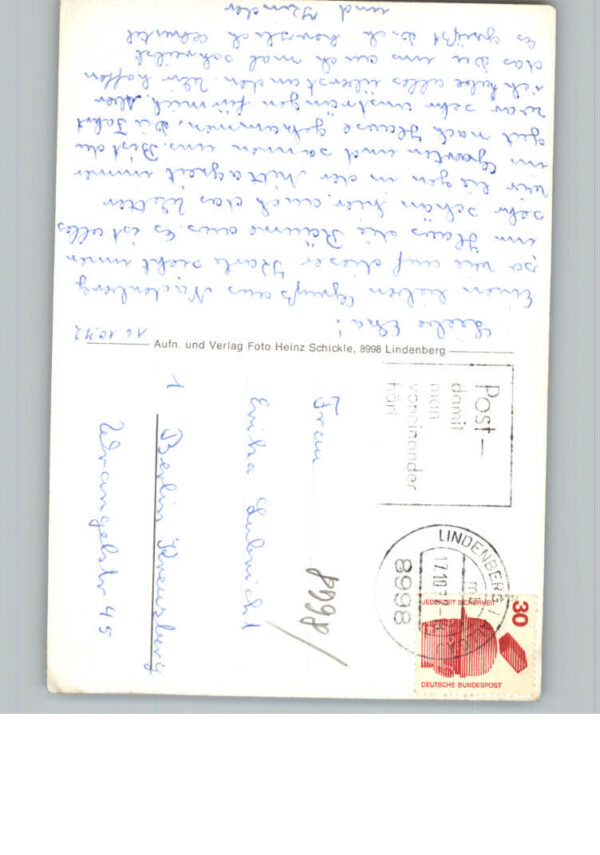 16.10.72
Liebe
Einen lieben Gruß aus Nadenberg
so wie auf dieser Karte sieht
im Haus die Räume aus. Es ist alles
sehr schön hier, auch das Wetter
wir liegen in der Mittagzeit immer
im Garten und sannen uns. Bist du
gut nach Hause gekommen, die Fahrt
war sehr anstrengen für mich, aber
ich habe alles überstanden. Wir hoffen
das du uns auch mal schreibst
Es grüßt dich herzlich
und
Aufn. und Verlag Foto Heinz Schickle, 8998 Lindenberg
Post—
damit
man
voneinander
hört
LINDENBERG
17.10.7
8998
30
JEDERZEIT SICHERHEIT
DEUTSCHE BUNDESPOST
8998/
Frau
Erika
1 Berlin Kreuzberg
Wrangelstr 45